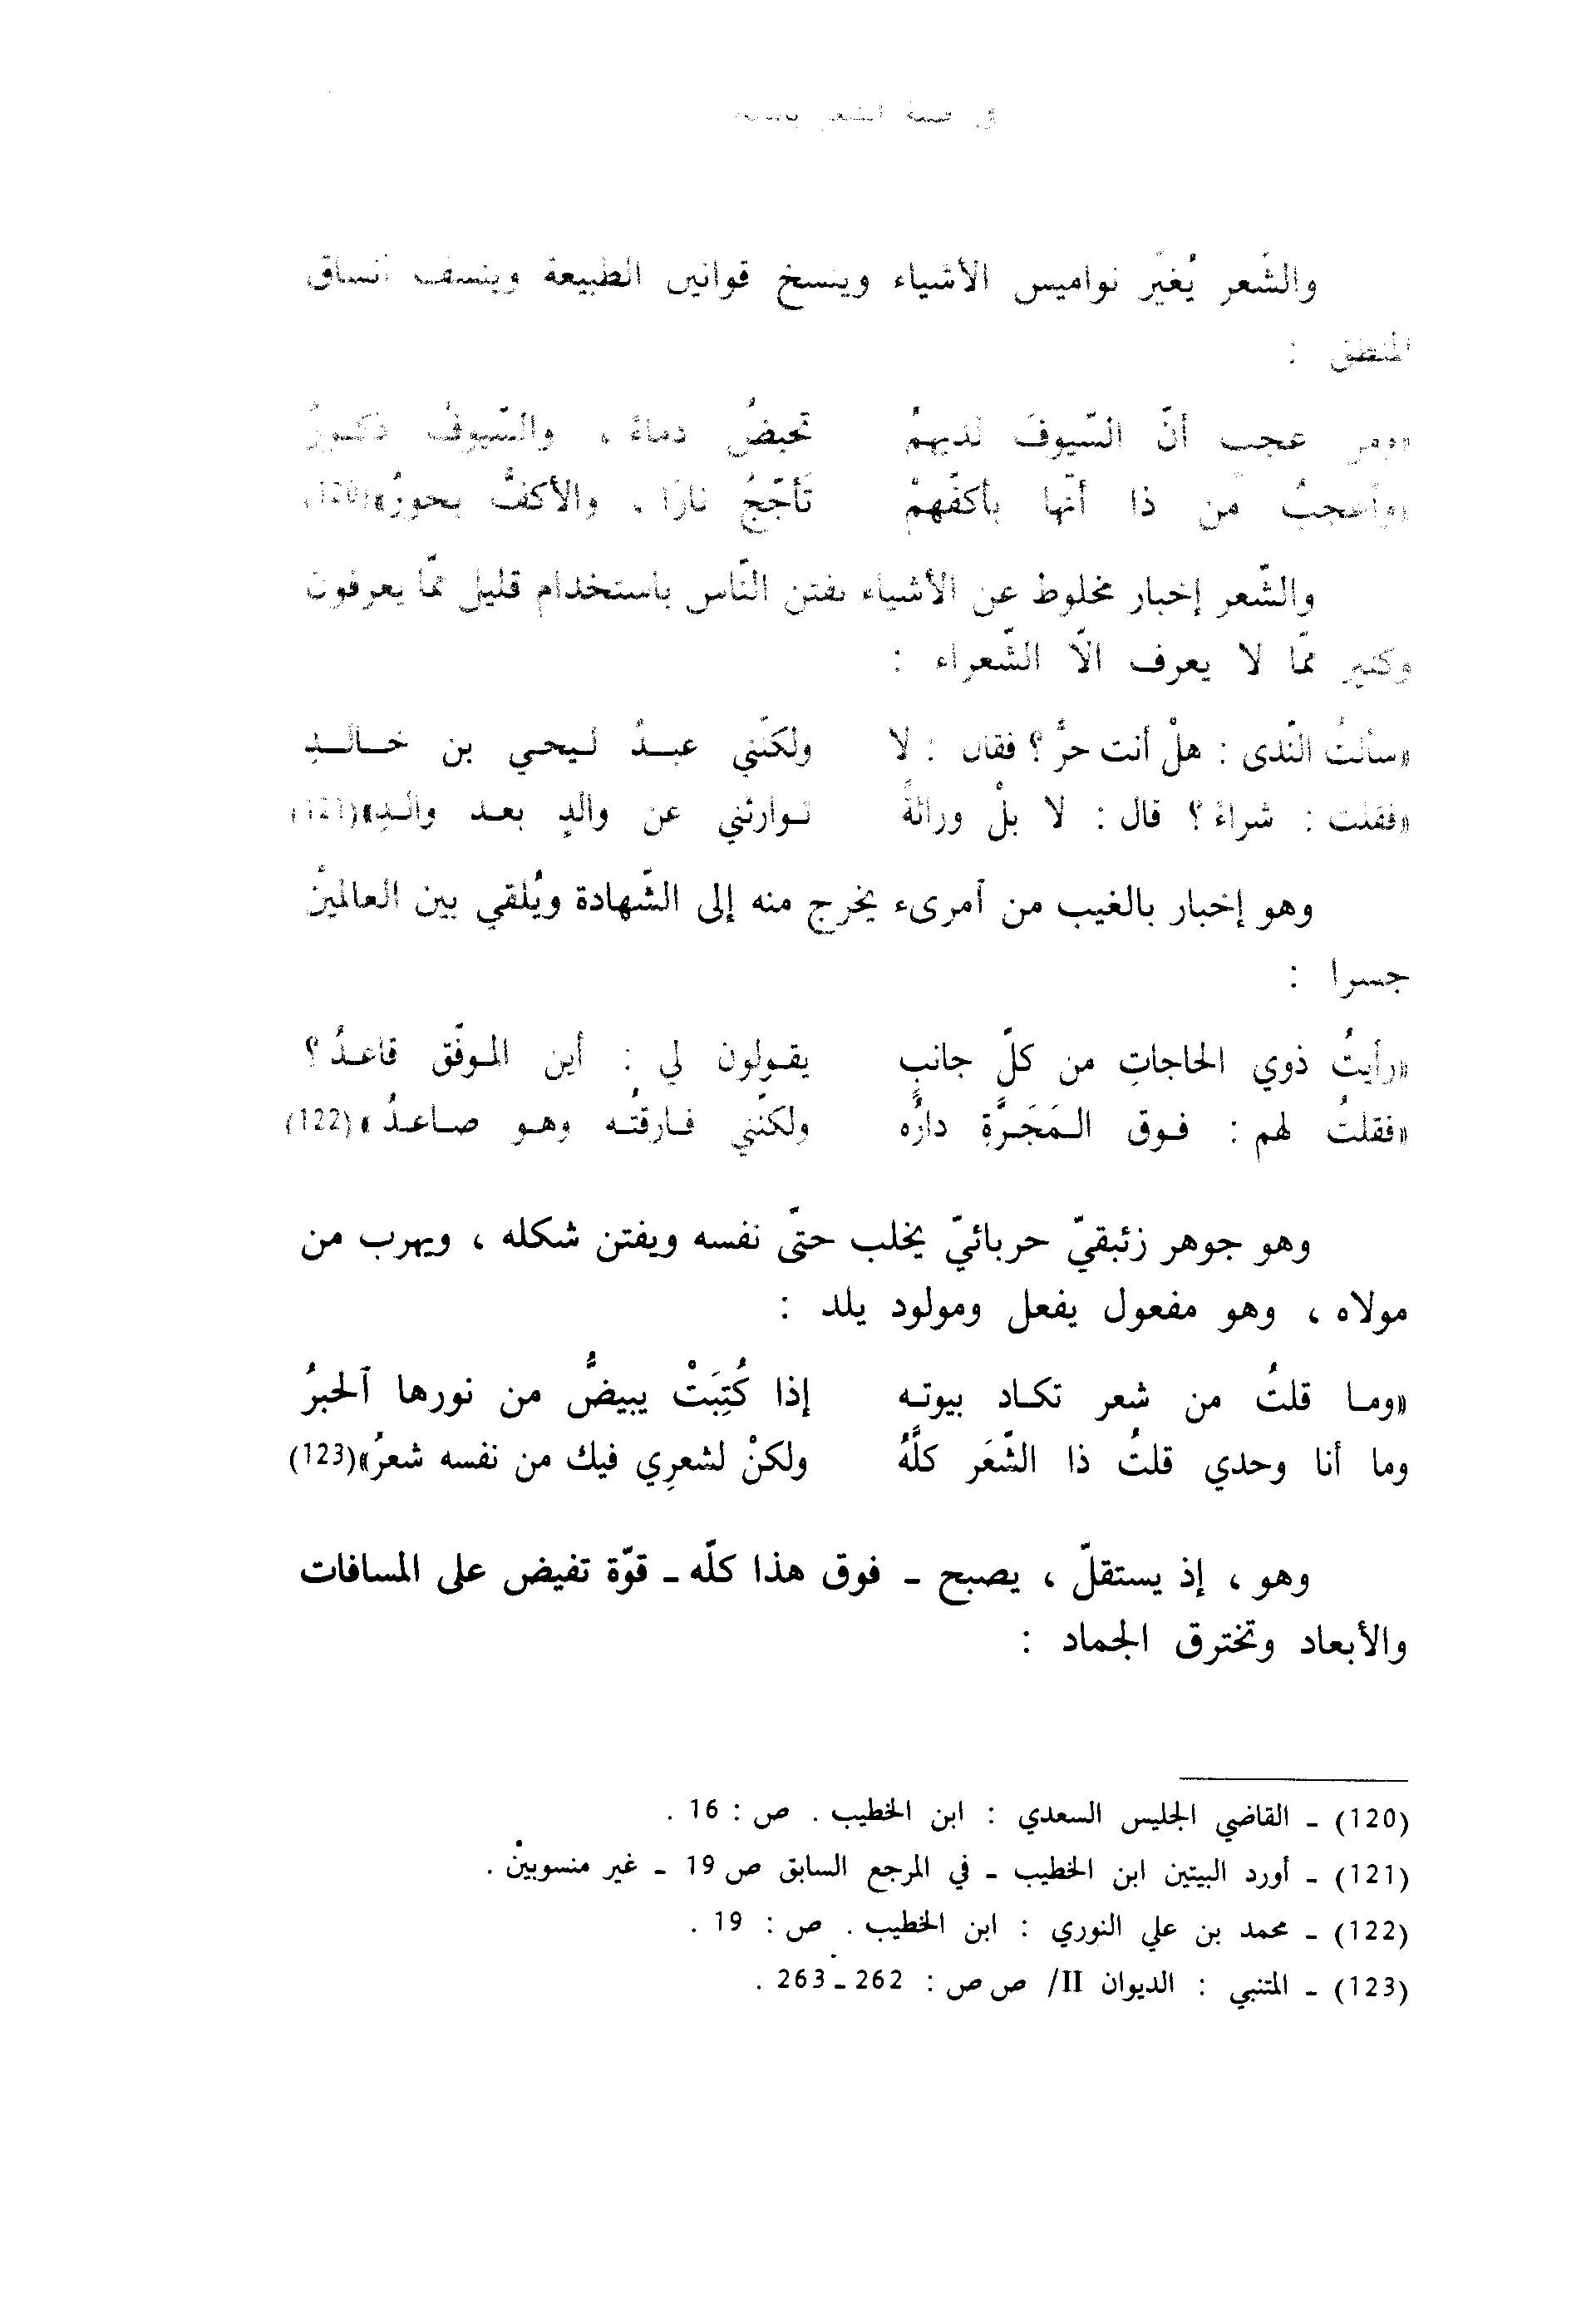 والشّعر يُغيّر نواميس الأشياء وينسخ قوانين الطبيعة وينسف أنساق
المنطق :
«ومن عجب أنّ السّيوفَ لديهمُ تحيضُ دماءً ، والسّيوفُ ذكورُ
«وأعجبُ من ذا أنّها بأكفّهمْ تَأجّجُ نارًا ، والأكفُّ بحورُ»(120)
والشّعر إخبار مخلوط عن الأشياء يفتن النّاس باستخدام قليل ممّا يعرفون
وكثير ممّا لا يعرف الاّ الشّعراء :
«سألتُ النّدى : هلْ أنت حرٌّ ؟ فقال : لا ولكنّني عبدُ ليحي بن خالدِ
«فقلت : شراءً ؟ قال : لا بلْ وراثةً توارثني عن والدٍ بعد والدِ»(121)
وهو إخبار بالغيب من آمرىء يخرج منه إلى الشّهادة ويُلقي بين العالميْن
جسرا :
«رأيتُ ذوي الحاجاتِ من كلّ جانبٍ يقولون لي : أين الموفّق قاعدُ ؟
«فقلتُ لهم : فوق المَجَرَّةِ دارُه ولكنّني فارقتُه وهو صاعدُ»(122)
وهو جوهر زئبقيّ حربائيّ يخلب حتّى نفسه ويفتن شكله ، ويهرب من
مولاه ، وهو مفعول يفعل ومولود يلد :
«وما قلتُ من شعر تكاد بيوته إذا كُتِبَتْ يبيضُّ من نورها آلحبرُ
وما أنا وحدي قلتُ ذا الشّعَر كلَّهُ ولكنْ لشعرِي فيك من نفسه شعرُ»(123)
وهو ، إذ يستقلّ ، يصبح - فوق هذا كلّه - قوّة تفيض على المسافات
والأبعاد وتخترق الجماد :
(120) - القاضي الجليس السعدي : ابن الخطيب . ص : 16 .
(121) - أورد البيتين ابن الخطيب - في المرجع السابق ص 19 - غير منسوبيْن .
(122) - محمد بن علي النوري : ابن الخطيب . ص : 19 .
(123) - المتنبي : الديوان II/ ص ص : 262 - 263 .